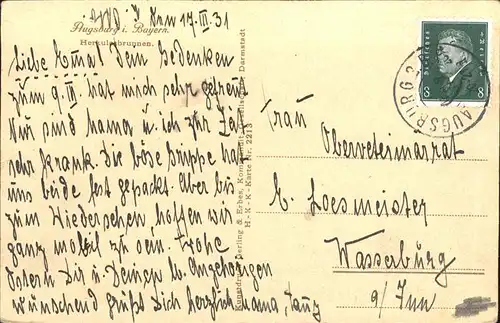 17.III.31
Augsburg i. Bayern.
Herkulesbrunnen.
Liebe Dein Gedenken
zum 9.III. hat mich sehr gefreut
Nur sind Mama u. ich zur Zeit
sehr krank. Die böse Grippe hat
uns beide fest gepackt. Aber bis
zum Wiedersehen, hoffen wir
ganz mobil zu sein. Frohe
Ostern Dir u. Deinen lb. Angehörigen
wünschend grüßt Dich herzlich Mama,
Kunstdr. Gerling & Erbes, Darmstadt
H.-X.-K-Karte Nr. 2213
Deutsches Reich
8 8
AUGSBURG 2
Frau
Oberveterinärrat
E. Loesmeister
Wasserburg
a/Inn